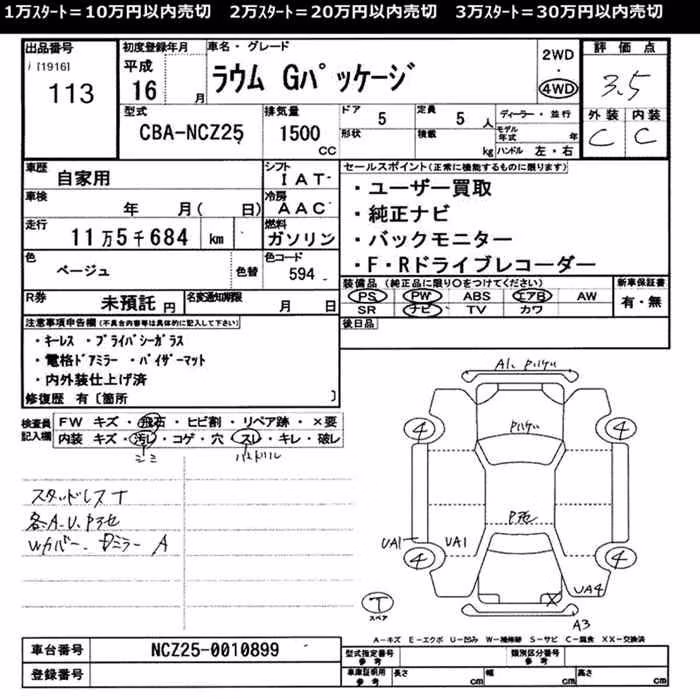 1万スタート＝10万円以内売切　2万スタート＝20万円以内売切　3万スタート＝30万円以内売切
出品番号
[1916]
113
初度登録年月
平成
16
月
車名・グレード
ラウム Gパッケージ
2WD
・
4WD
評価点
3.5
外装
内装
C
C
型式
CBA-NCZ25
排気量
1500
CC
ドア
5
形状
定員
5
人
積載
kg
ディーラー・並行
モデル年式
年
ハンドル 左・右
車歴
自家用
シフト
IAT
車検
年　月(　日)
冷房
AAC
走行
11万5千684
km
燃料
ガソリン
色
ベージュ
色替
色コード
594
R券
未預託 円
名変通知期限
月　日
セールスポイント(正常に機能するものに限ります)
・ユーザー買取
・純正ナビ
・バックモニター
・F・Rドライブレコーダー
装備品 (純正品に限り○をつけてください)
PS PW ABS エアB AW
SR ナビ TV カワ
新車保証書
有・無
後日品
注意事項申告欄(不具合内容等は具体的に記入して下さい)
・キーレス ・プライバシーガラス
・電格ドアミラー ・バイザーマット
・内外装仕上げ済
修復歴 有〔箇所　　〕
検査員記入欄
FW キズ・飛石・ヒビ割・リペア跡・×要
内装 キズ・汚れ・コゲ・穴・スレ・キレ・破レ
シミ
ハンドル
スタッドレスT
各A.U.P
Wカバー. ドミラーA
A1.
4
4
P
UA1
UA1
4
4
UA4
X
T
スペア
A3
A－キズ E－エクボ U－凹ミ W－補修跡 S－サビ C－腐食 XX－交換済
車台番号
NCZ25-0010899
登録番号
型式指定番号
参考
類別区分番号
参考
車庫証明用
参考
長さ
cm
幅
cm
高さ
cm